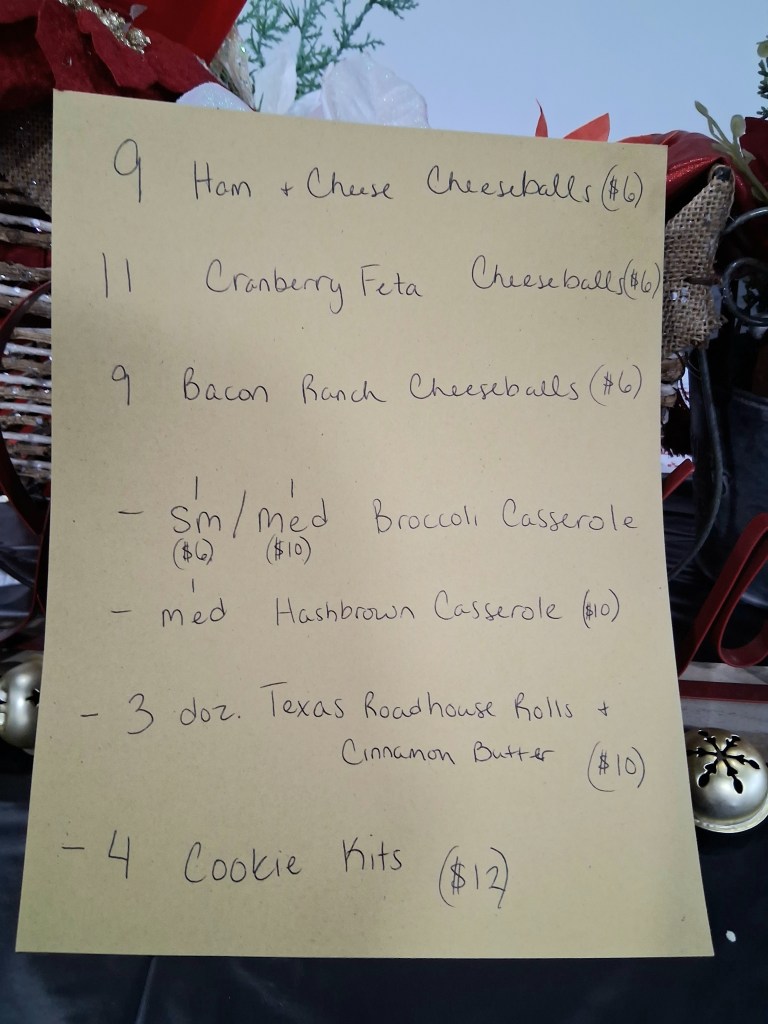 9 Ham + Cheese Cheeseballs ($6)
11 Cranberry Feta Cheeseballs ($6)
9 Bacon Ranch Cheeseballs ($6)
1 1
- Sm / Med Broccoli Casserole
($6) ($10)
1
- med Hashbrown Casserole ($10)
- 3 doz. Texas Roadhouse Rolls +
Cinnamon Butter ($10)
- 4 Cookie Kits ($12)